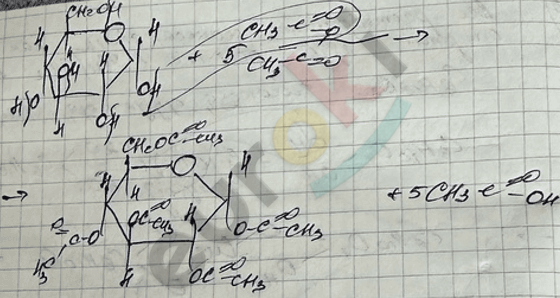 CH₂OH
H O H
+ 5 CH₃-C=O
O →
CH₃-C=O
H OH H
HO OH
H OH
CH₂OC=O-CH₃
→ O H
H H
OC=O-CH₃ H + 5CH₃C=O-OH
O=C-O O-C=O-CH₃
H₃C
H OC=O-CH₃